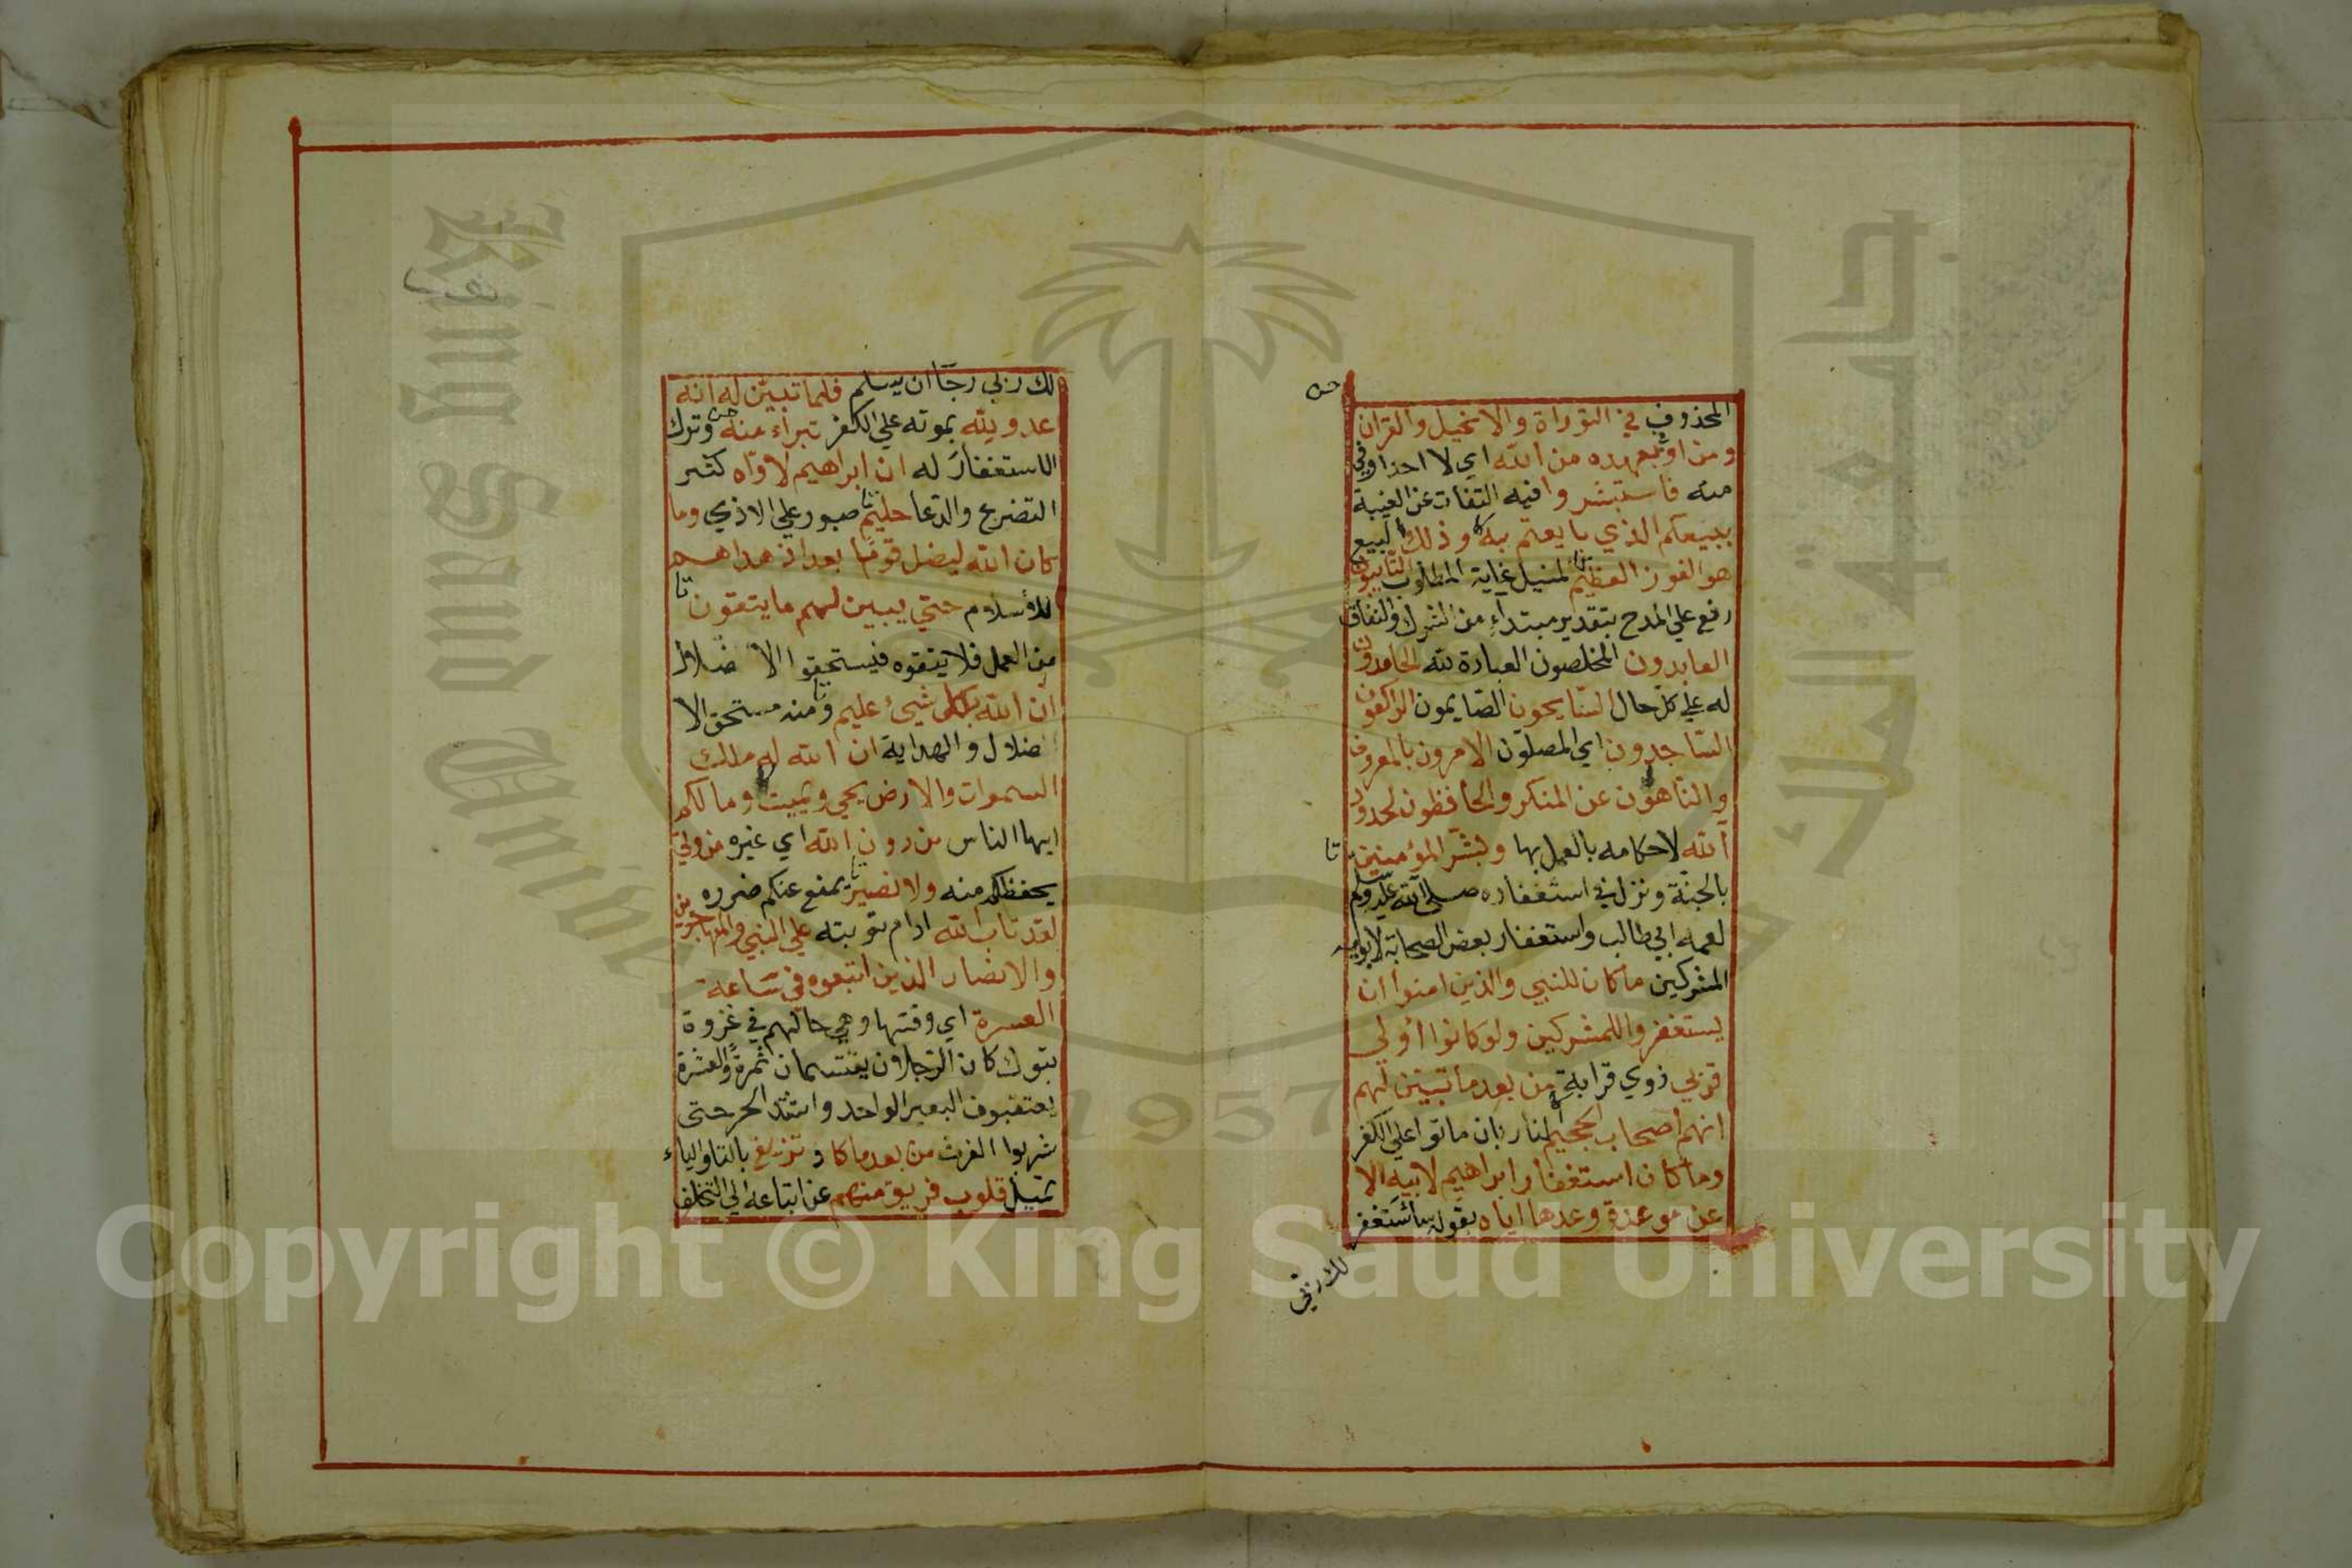 المحذوف في التوراة والانجيل والقران
ومن اوفى بعهده من الله اي لا احد اوفي
منه فاستبشروا فيه التفات عن الغيبة
ببيعكم الذي بايعتم به وذلك البيع
هو الفوز العظيم المنيل غاية المطلوب التايبون
رفع علي المدح بتقدير مبتداء من الشرك والنفاق
العابدون المخلصون العبادة لله الحامدون
له علي كل حال السّايحون الصّايمون الراكعون
السّاجدون اي المصلّون الامرون بالمعروف
والنّاهون عن المنكر والحافظون لحدود
الله لاحكامه بالعمل بها وبشّر المؤمنين
بالجنّة ونزل في استغفاره صلى الله عليه وسلم
لعمه ابي طالب واستغفار بعض الصحابة لابويه
المشركين ما كان للنبي والذين امنوا ان
يستغفروا للمشركين ولو كانوا أولي
قربي ذوي قرابة من بعد ما تبيّن لهم
انهم اصحاب الجحيم النار بان ماتوا علي الكفر
وما كان استغفار ابراهيم لابيه الا
عن موعدة وعدها اياه بقوله ساستغفر
لك ربّي
لك ربي رجّا ان يسلم فلما تبيّن له انه
عدو لله بموته علي الكفر تبراء منه وترك
الاستغفار له ان ابراهيم لاوّاه كثير
التضرع والدعا حليم صبور علي الاذي وما
كان الله ليضل قومًا بعد اذ هداهم
للاسلام حتي يبين لهم ما يتقون
من العمل فلا يتقوه فيستحقوا الا ضلال
ان الله بكل شيء عليم ومنه مستحق الا
ضلال والهداية ان الله له ملك
السموات والارض يحي ويميت وما لكم
ايها الناس من دون الله اي غيره من ولي
يحفظكم منه ولا نصير يمنع عنكم ضرره
لقد تاب الله ادام توبته علي النبي والمهاجرين
والانصار الذين اتبعوه في ساعة
العسرة اي وقتها وهي حالهم في غزوة
تبوك كان الرجلان يقتسمان تمرة والعشرة
يعتقبون البعير الواحد واشتد الحر حتى
شربوا الفرث من بعد ما كاد تزيغ بالتا والياء
تميل قلوب فريق منهم عن اتباعه الي التخلف
King Saud University
جامعة الملك سعود
1957
Copyright © King Saud University